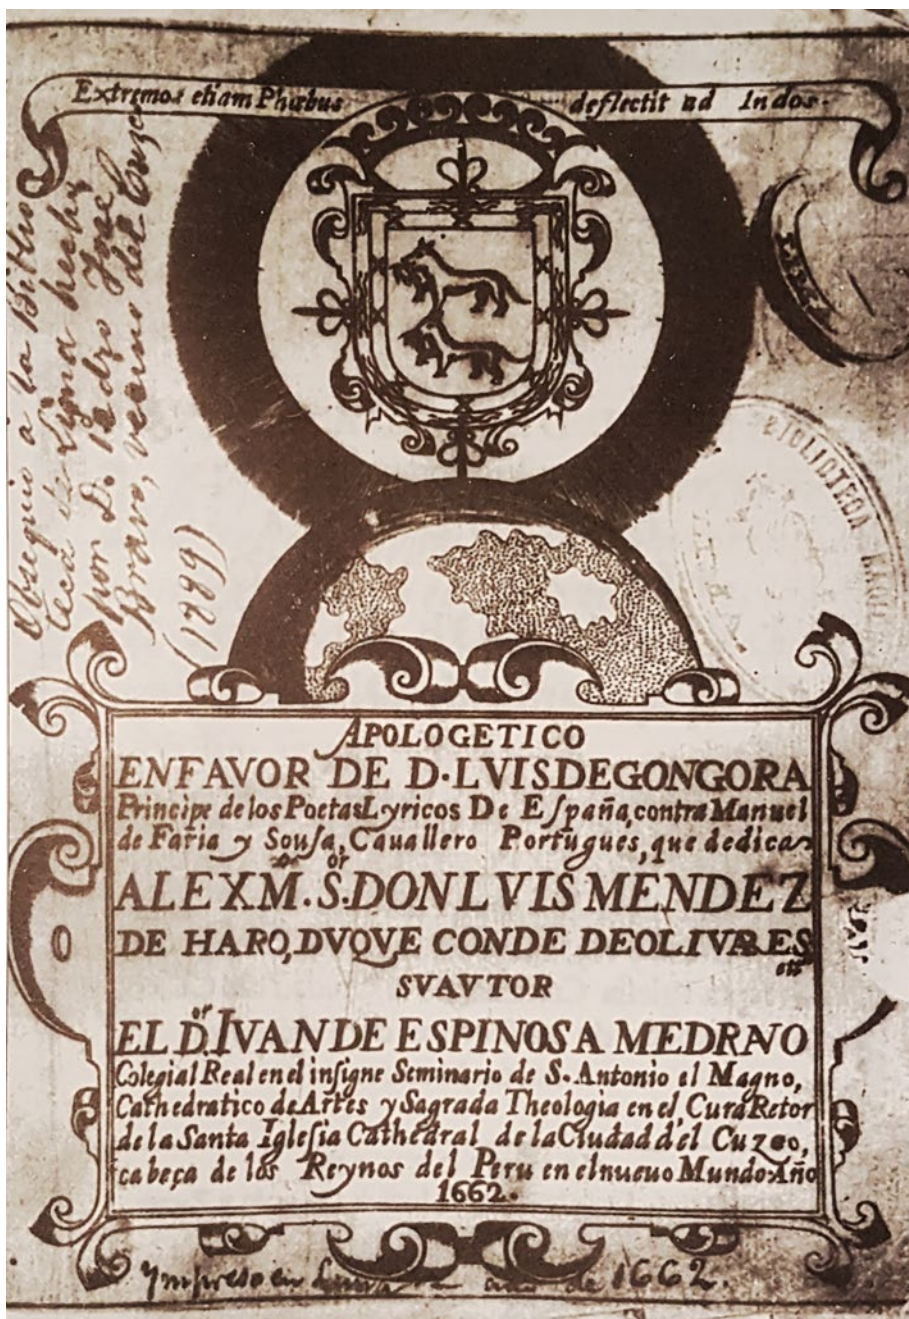 Extremos etiam Phœbus deflectit ad Indos.
Obsequio á la Biblio
teca de Lima hecho
por D. Pedro José
Bravo, vecino del Cuzco
(1889)
BIBLIOTECA
APOLOGETICO
ENFAVOR DE D. LVISDEGONGORA
Principe de los Poetas Lyricos De España, contra Manuel
de Faria y Sousa, Cauallero Portugues, que dedica
AL EXMº. S.or DON LVIS MENDEZ
DE HARO, DVQVE CONDE DEOLIVARES
etc
SVAVTOR
EL D.or IVANDE ESPINOSA MEDRANO
Colegial Real en el insigne Seminario de S. Antonio el Magno,
Cathedratico de Artes y Sagrada Theologia en el, Cura Retor
de la Santa Iglesia Cathedral de la Ciudad d'el Cuzco,
cabeça de los Reynos del Peru en el nueuo Mundo. Año
1662.
Ympreso en Lima año de 1662.